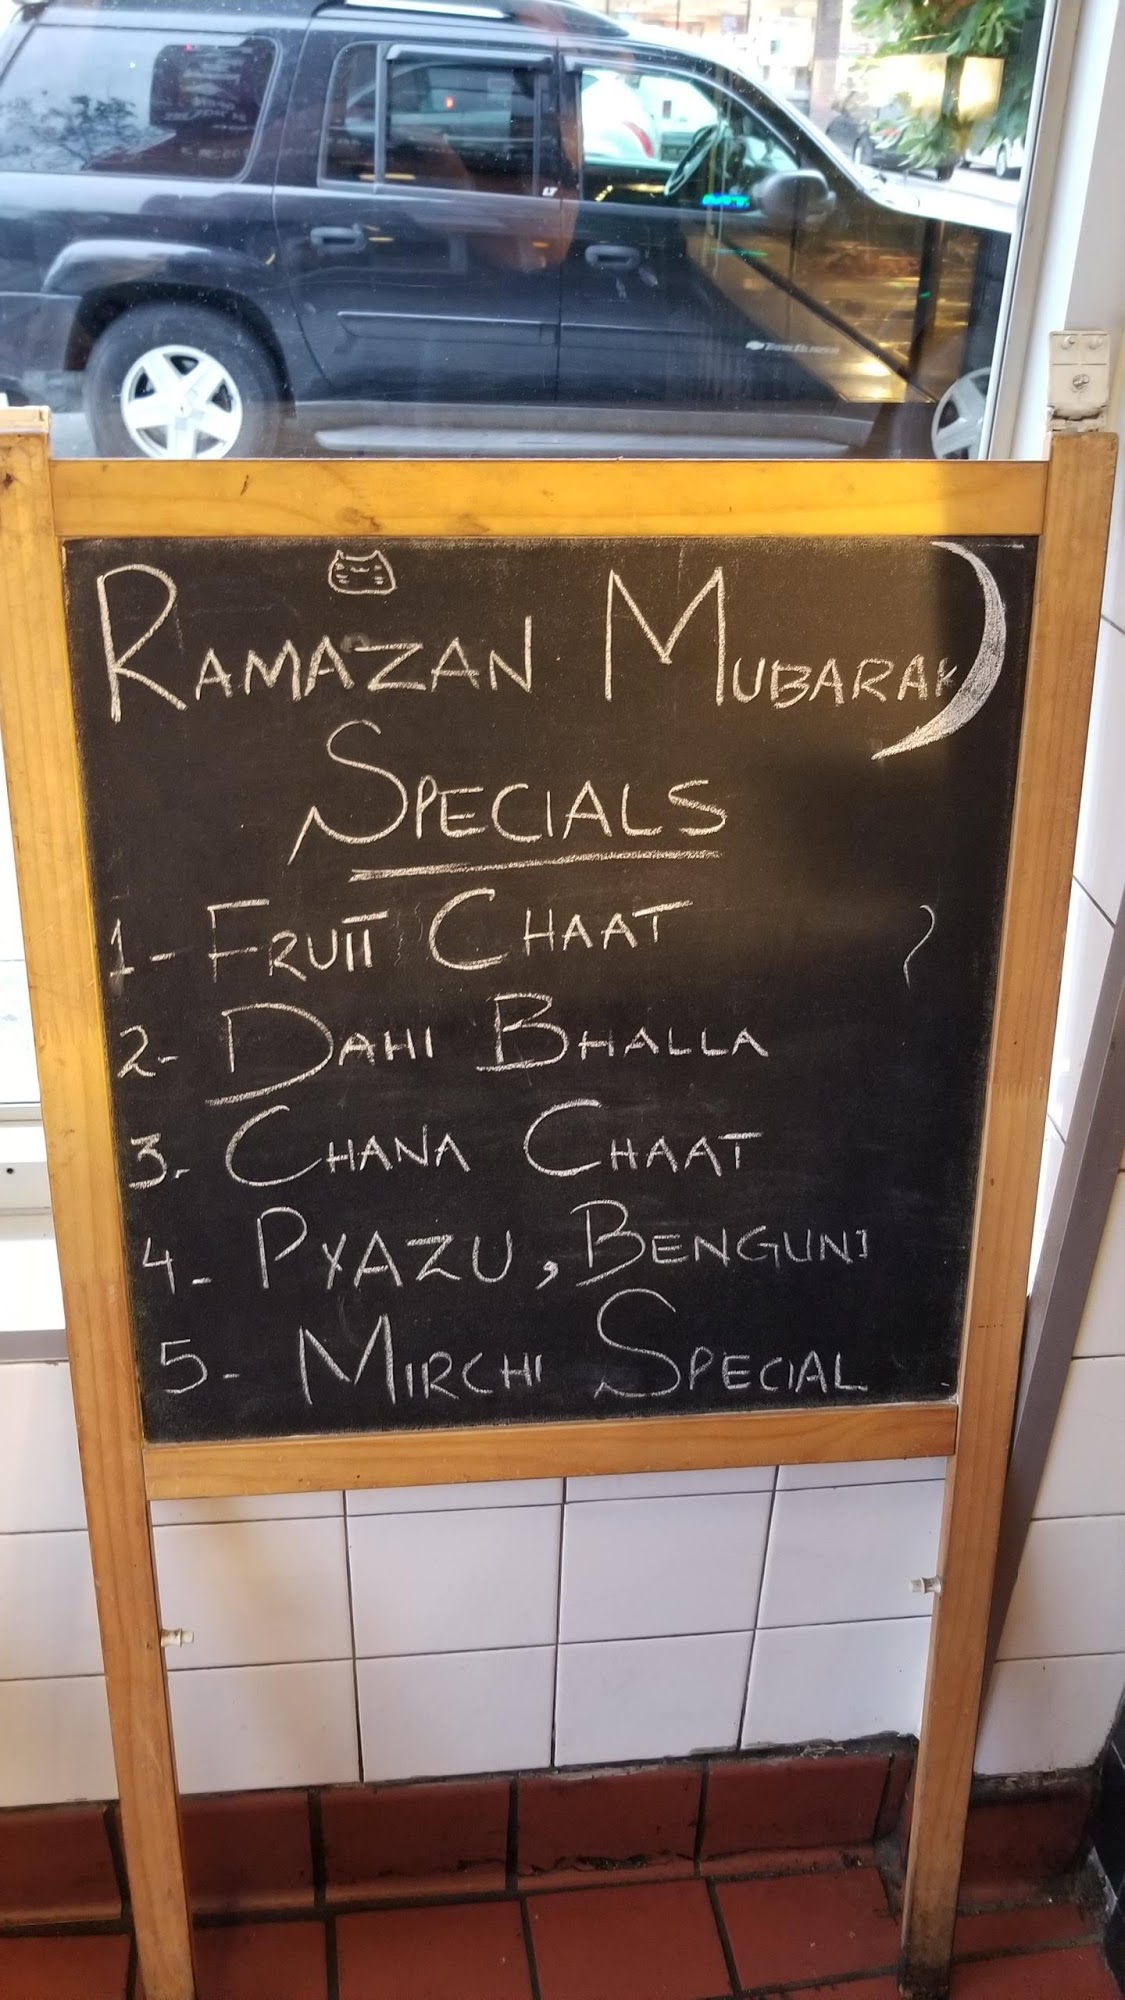 LT
TRAILBLAZER
RAMAZAN MUBARAK
SPECIALS
1- FRUIT CHAAT
2- DAHI BHALLA
3. CHANA CHAAT
4- PYAZU, BENGUNI
5- MIRCHI SPECIAL